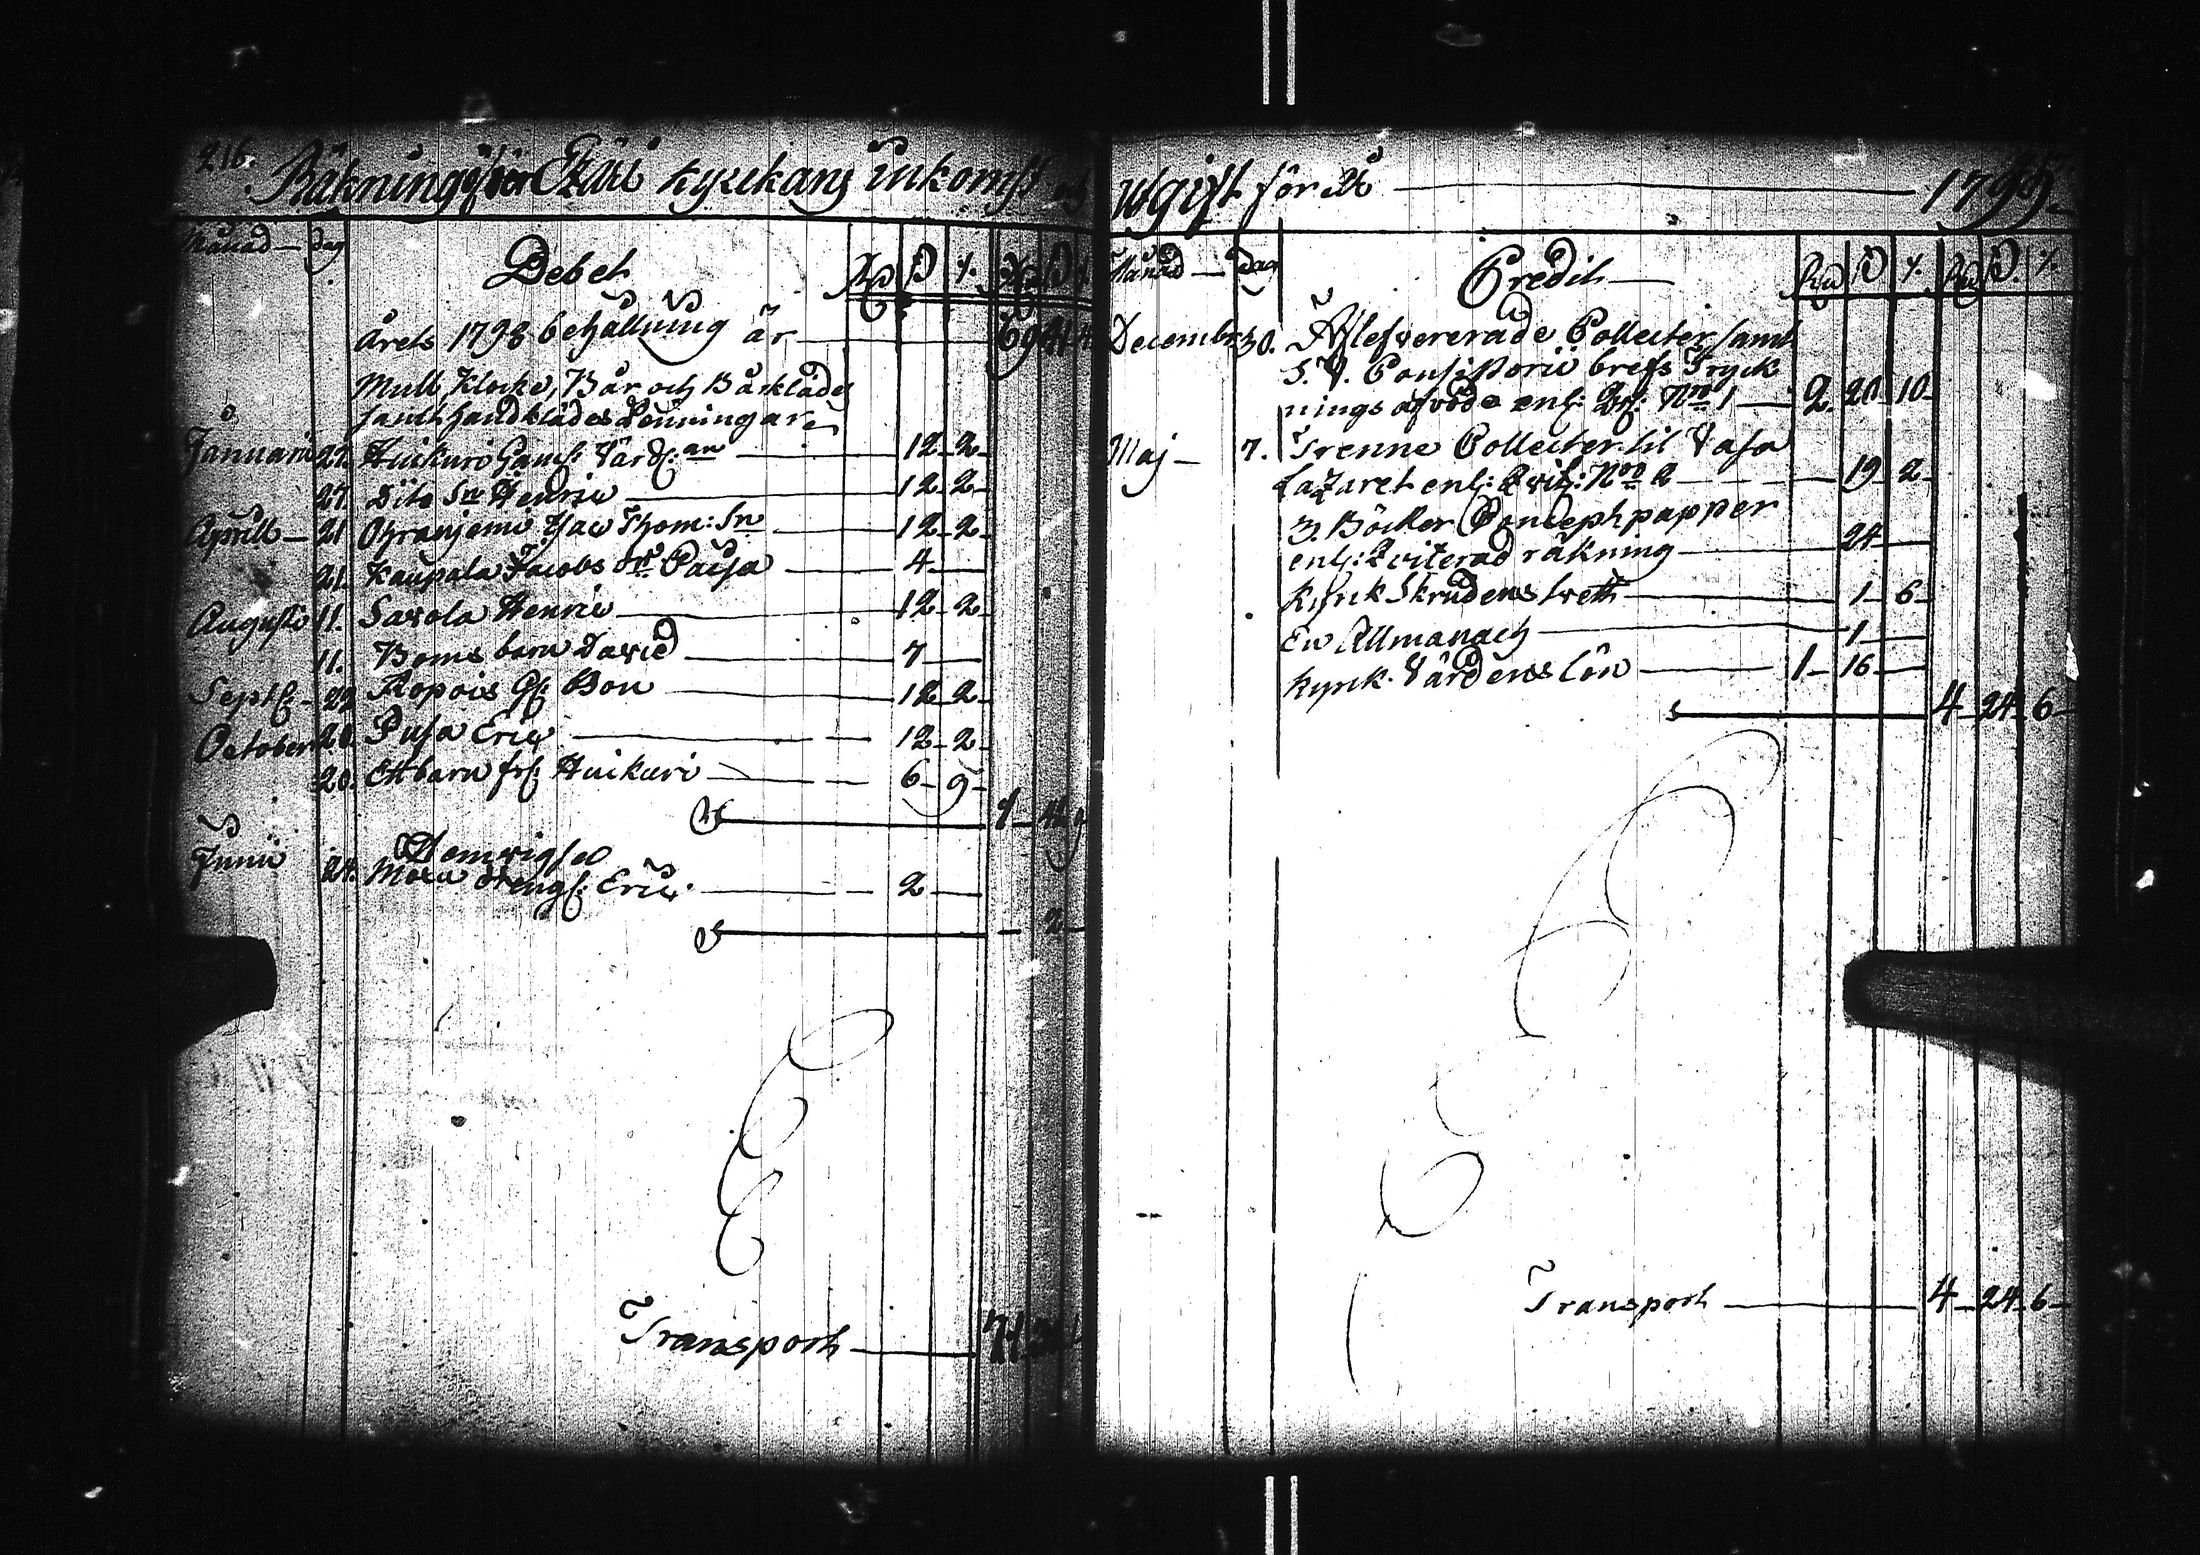 216.
Räkning öfver Etzäri kyrkans inkomst och
Månad — dag Debet Rd ß r. Rd ß r.
årets 1798 behållning är
Mull, Klocke, Bår och Bårkläde
samt handklädes Penningar
Januarii 27. Huikuri Gamf: Värd: an — 12 - 2 -
27. Dito Sn Henric — 12 - 2 -
Aprill — 21 Ohranjemi Isac Thom: Sn — 12 - 2 -
21. Kaupala Jacobs dr Caisa — 4 —
Augusti 11. Savola Henric — 12 - 2 -
11. Boms barn David — 7 —
Sept: - 22 Ropois Bon — 12 - 2 -
October 20. Pusa Eric — 12 - 2 -
20. Ett barn fr: Huikuri — 6 - 9 -
Junii 24. Hemvigsel
dreng: Eric. — 2 —
— 2 -
Transport — 71
utgift för åt — 1799.
Månad — dag Credit — Rd ß r. Rd ß. r.
December 30. Aflefvererade Collecter samt
S. V. Consistorii brefs Tryck
nings afvöde enl: Qv: No 1 — 2. 20 - 10 -
Maj — 7. Trenne Collecter til Vasa
Lazaret enl: Qvit: No 2 — 19 - 2 -
3. Böcker Concept papper
enl: Qviterad räkning — 24 —
Kyrck Skrudens tvett — 1 - 6 -
En Allmanach — 1 —
Kyrck Värdens lön — 1 - 16 —
4 - 24 - 6 -
Transport — 4 - 24 - 6 -